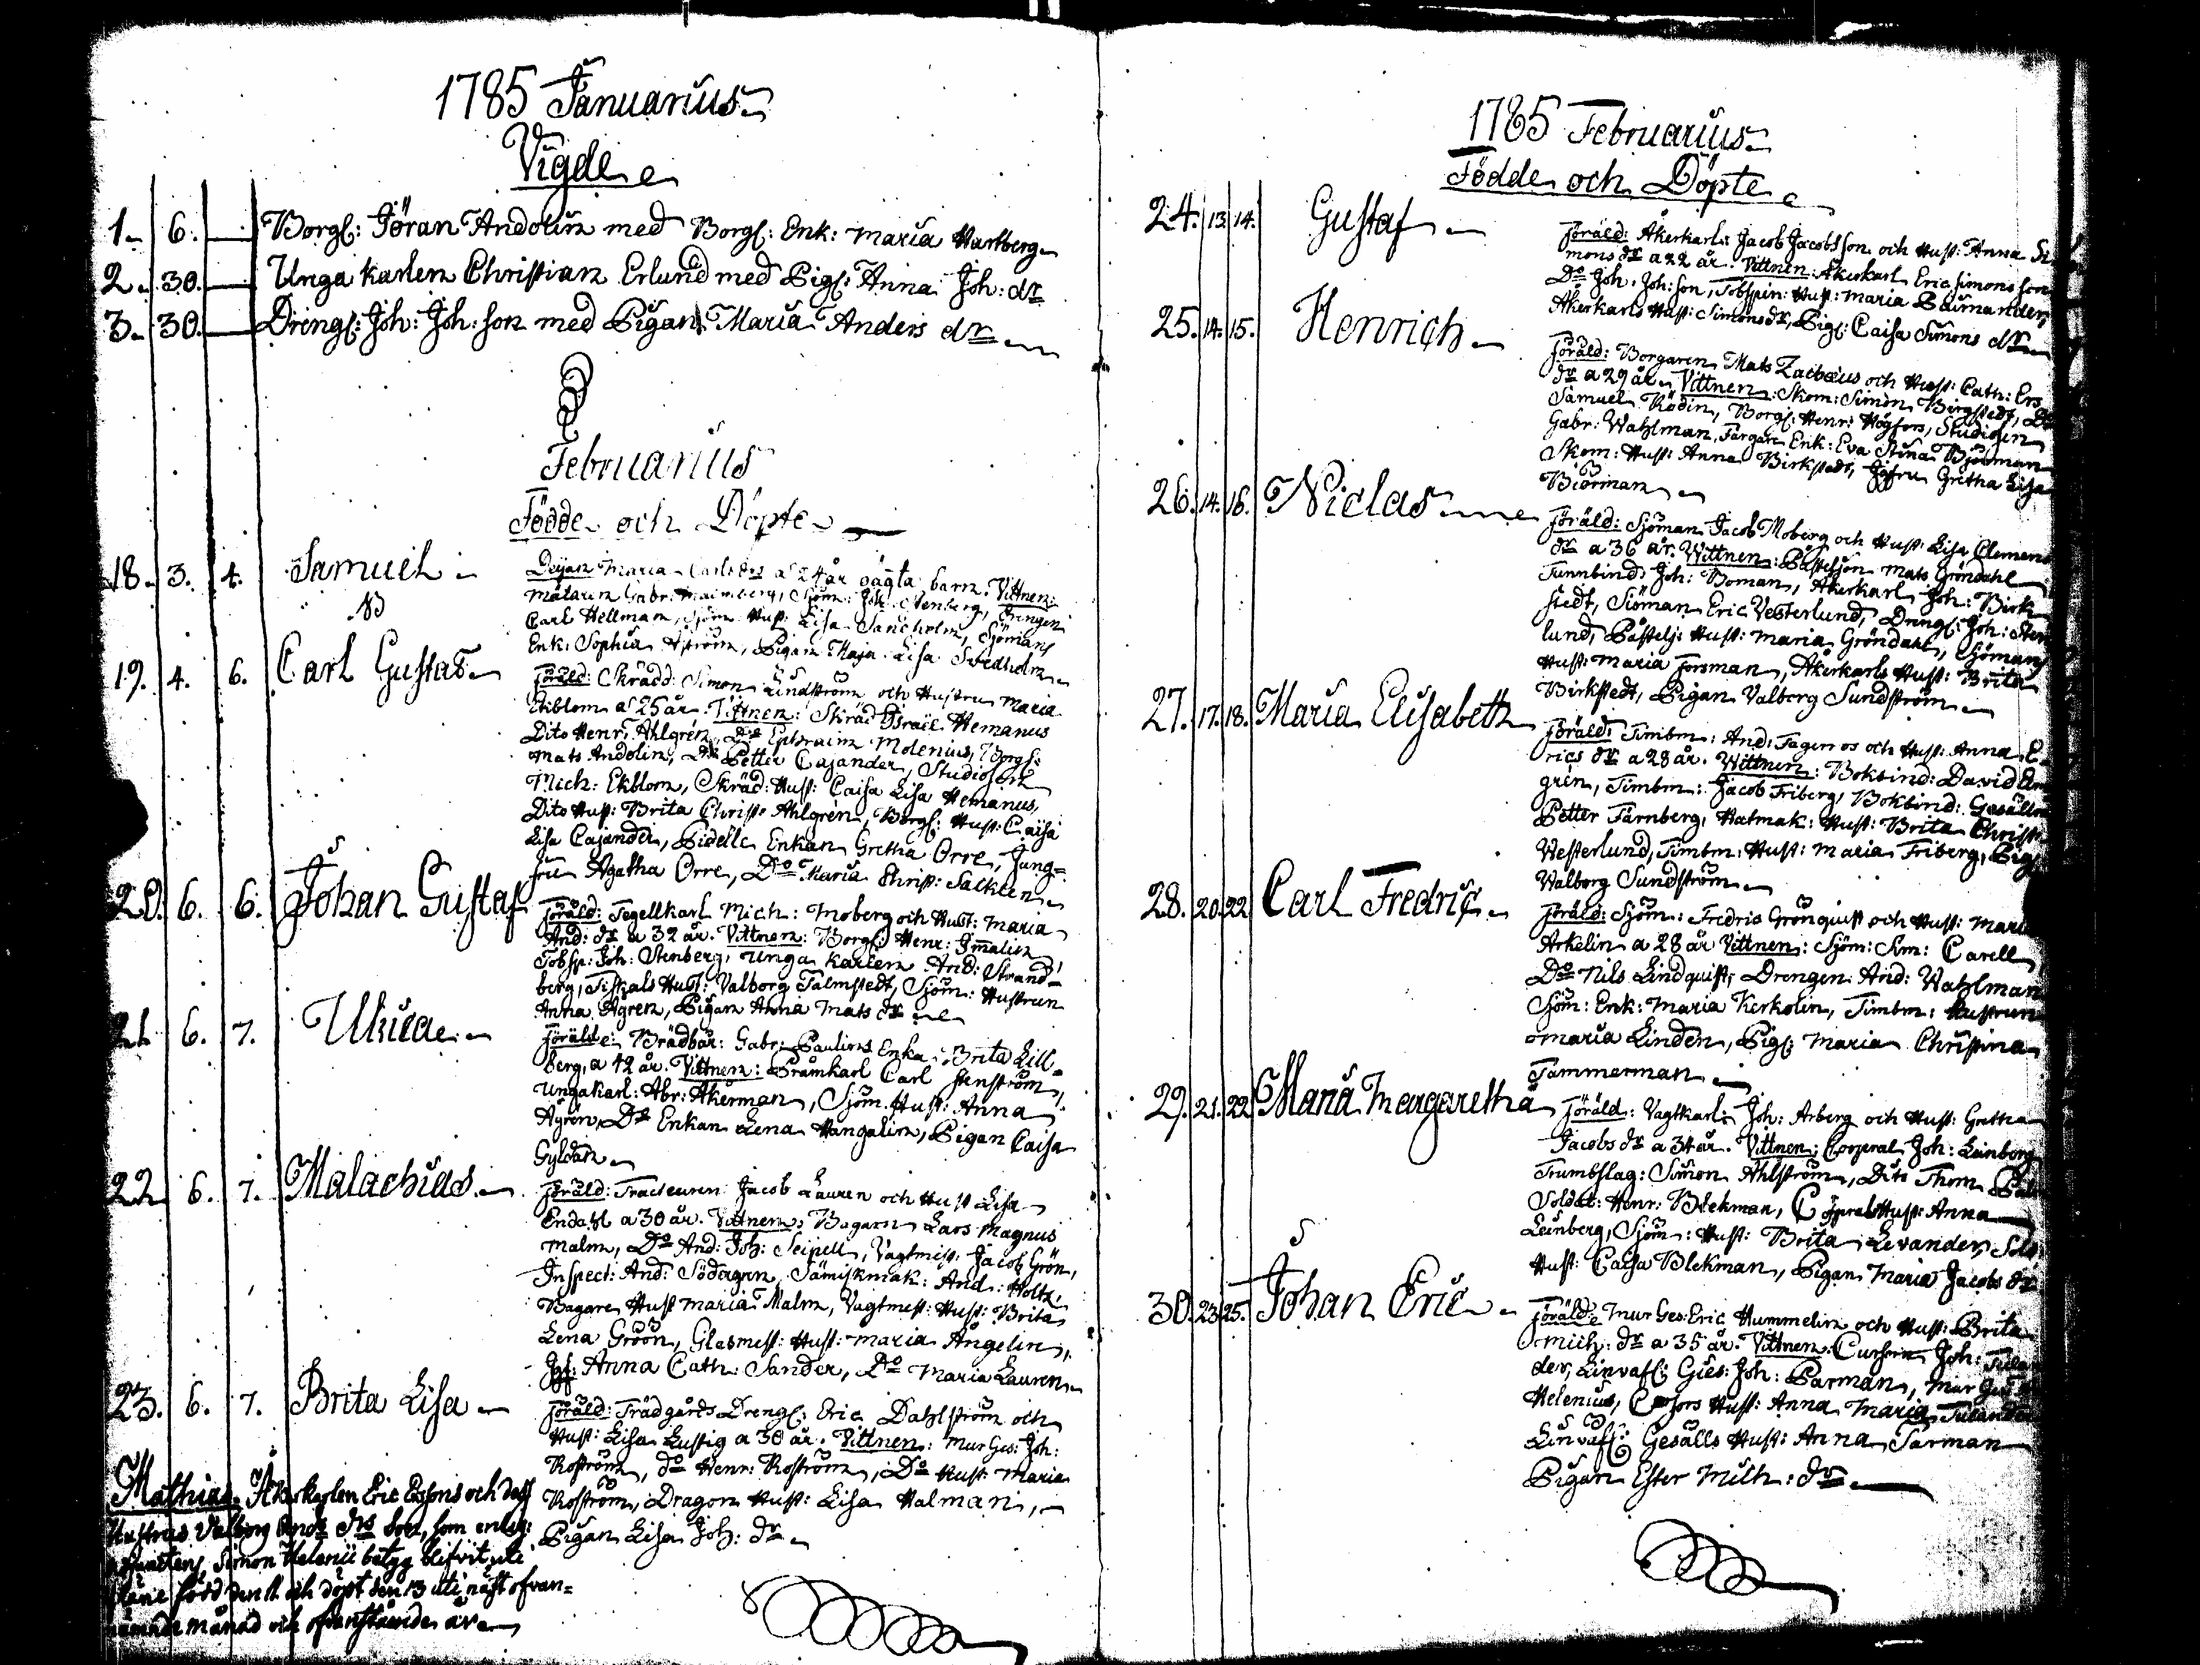 1785 Januarius
Vigde
1. 6. Borg: Jöran Andolin med Borg: Enk: Maria Hartberg
2. 30. Unga karlen Christian Erlund med Pig: Anna Joh: dr
3. 30. Dreng: Joh: Joh: son med Pigan Maria Anders dr
Februarius
Födde och Döpte
18. 3. 4. Samuel
Maria Carls drs a 24 år oägta barn. Vittnen:
målaren Gabr: Malmberg, Sjöm: Joh: Stenberg, Drengen
Carl Hellman, Sjöm: Hust: Lisa Sancholm, Sjömans
Enk: Sophia Åström, Pigan Maja Lisa Svedholm
19. 4. 6. Carl Gustaf
Föräld: Skrädd: Simon Lindström och Hustru Maria
Ekblom a 25 år. Vittnen: Skräd: Israel Hemanus
Dito Henr: Ahlgrén, Do Ephraim Molenius, Borg:
Mats Andolin, Do Petter Cajander, Studiosen
Mich: Ekblom, Skräd: Hust: Caisa Lisa Hemanus,
Dito Hust: Brita Christ: Ahlgrén, Borg: Hust: Caisa
Lisa Cajander, Enkan Gretha Orre, Jung=
fru Agatha Orre, Do Maria Christ: Sacklen
20. 6. 6. Johan Gustaf
Föräld: Tegellkarl Mich: Moberg och Hust: Maria
And: dr a 32 år. Vittnen: Borg: Henr: Imalin
Tobsp: Joh: Stenberg, Unga karlen And: Strand=
berg, Fiskals Hust: Valborg Talmstedt, Sjöm: Hustrun
Anna Ågren, Pigan Anna Mats dr
21. 6. 7. Ulrica
Föräld: Brädbär: Gabr: Paulins Enka Brita Lill=
berg, a 42 år. Vittnen: Pråmkarl Carl Stenström,
Ungakarl: Abr: Åkerman, Sjöm: Hust: Anna
Ågrén, Do Enkan Lena Hangelin, Pigan Caisa
Gyldan
22. 6. 7. Malachias
Föräld: Tracteuren Jacob Lauren och Hust Lisa
Endahl a 30 år. Vittnen: Bagaren Lars Magnus
Malm, Do And: Joh: Seipell, Vagtmest: Jacob Grön,
Inspect: And: Södergren, Sämiskmak: And: Holtz,
Bagare Hust Maria Malm, Vagtmest: Hust: Brita
Lena Gröön, Glasmest: Hust: Maria Ångelin,
Jgf: Anna Cath: Sander, Do Maria Lauren
23. 6. 7. Brita Lisa
Föräld: Trädgårds Dreng: Eric Dahlström och
Hust: Lisa Lustig a 30 år. Vittnen: Mur Ges: Joh:
Roström, do Henr: Roström, Do Hust: Maria
Roström, Dragon Hust: Lisa Halman,
Pigan Lisa Joh: dr
Mathias Åkerkarlen Eric Erssons och dess
Hustrus Valborg And: drs Son, som enligt
Simon Helenii betyg blifvit uti
född den 11 och döpt den 13 uti näst ofvan=
nämnde månad och ofvanstående år
1785 Februarius
Födde och Döpte
24. 13. 14. Gustaf
Föräld: Åkerkarl: Jacob Jacobsson och Hust: Anna Si
mons dr a 22 år. Vittnen: Åkerkarl Eric Simonsson
Do Joh: Joh: son, Tobspin: Hust: Maria Björnander,
Åkerkarls Hust: Simons dr, Pig: Caisa Simons dr
25. 14. 15. Henrich
Föräld: Borgaren Mats Zachæus och Hust: Cath: Ers
dr a 29 år. Vittnen: Skom: Simon Birgstedt, Do
Samuel Rödin, Borg: Henr: Högfors, Studiosen
Gabr: Wahlman, Färgare Enk: Eva Stina Björman
Skom: Hust: Anna Birkstedt, Jgfru Gretha Lisa
Biörman
26. 14. 16. Niclas
Föräld: Sjöman Jacob Moberg och Hust: Lisa Clemens
dr a 36 år. Wittnen: Båtskjön Mats Gröndahl
Tunnbind: Joh: Boman, Åkerkarl Joh: Birk
stedt, Siöman Eric Vesterlund, Dreng: Joh: Sten
lund, Hust: Maria Gröndahl, Sjömans
Hust: Maria Forsman, Åkerkarls Hust: Brita
Birkstedt, Pigan Valborg Sundström
27. 17. 18. Maria Elisabeth
Föräld: Timbm: And: Fagerros och Hust: Anna E
rics dr a 28 år. Wittnen: Bokbind: David Em
grén, Timbm: Jacob Friberg, Bokbind: Gesällen
Petter Färnberg, Hatmak: Hust: Brita Christ:
Westerlund, Timbm: Hust: Maria Friberg, Pig:
Walborg Sundström
28. 20. 22. Carl Fredric
Föräld: Sjöm: Fredric Grönquist och Hust: Maria
Arkelin a 28 år Vittnen: Sjöm: Sim: Carell,
Do Nils Lindquist, Drengen And: Wahlman
Sjöm: Enk: Maria Kerkolin, Timbm: Hustrun
Maria Linden, Pig: Maria Christina
Tammerman
29. 21. 22. Maria Margaretha
Föräld: Vagtkarl: Joh: Arberg och Hust: Gretha
Jacobs dr a 34 år. Vittnen: Corporal Joh: Leinberg
Trumbslag: Simon Ahlström, Dito Thom
Soldat: Henr: Blekman, Corporals Hust: Anna
Leinberg, Sjöm: Hust: Brita Levander, Sold:
Hust: Caisa Blekman, Pigan Maria Jacobs dr
30. 23. 25. Johan Eric
Föräld: Mur Ges: Eric Hummelin och Hust: Brita
Mich: dr a 35 år. Vittnen: Cursorn Joh: Tulan
der, Linvafs: Gies: Joh: Parman, Mur Ges:
Helenius, Cursors Hust: Anna Maria Tulander
Linvafs: Gesälls Hust: Anna Parman
Pigan Ester Mich: dr